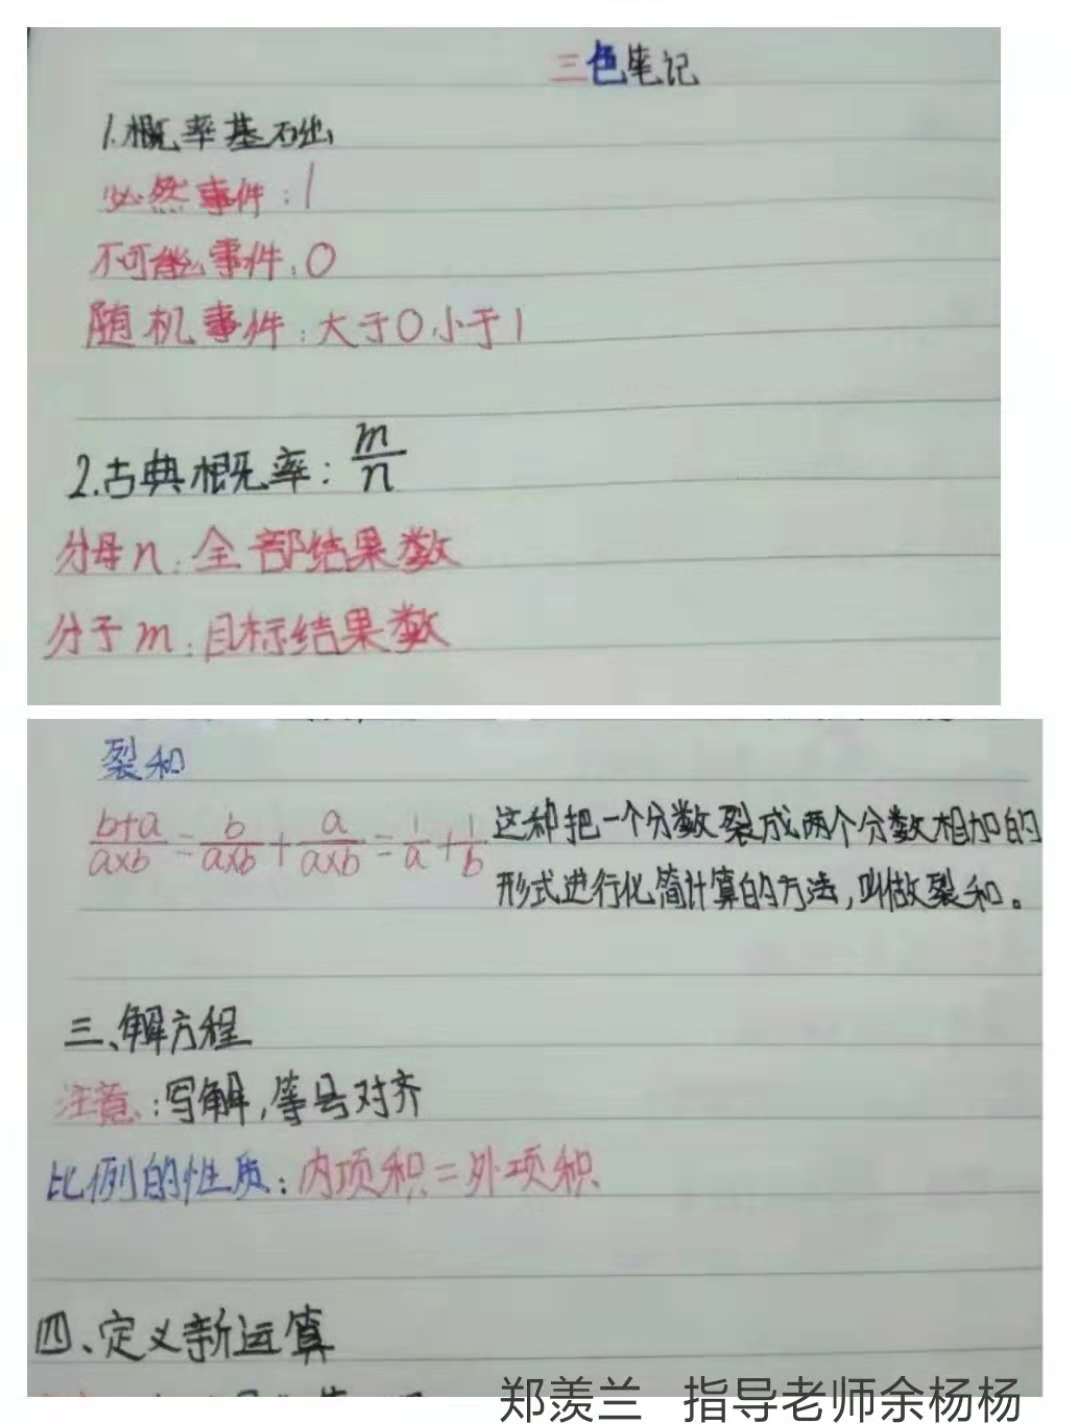 三色笔记
1.概率基础
必然事件：1
不可能事件：0
随机事件：大于0小于1
2.古典概率：m/n
分母n：全部结果数
分子m：目标结果数
裂和
b+a/a×b = b/a×b + a/a×b = 1/a + 1/b 这种把一个分数裂成两个分数相加的
形式进行化简计算的方法，叫做裂和。
三、解方程
注意：写解，等号对齐
比例的性质：内项积=外项积
四、定义新运算
郑羡兰 指导老师余杨杨